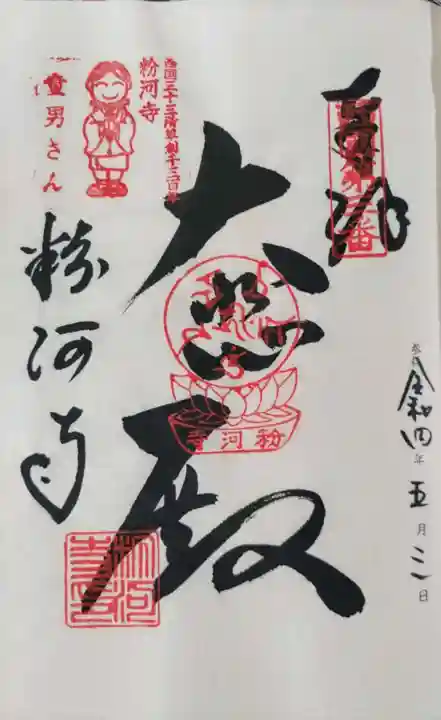 奉拝
西国第三番
令和四年五月三日
大悲殿
粉河寺
西国三十三所草創千三百年
粉河寺
童男さん
粉河寺
粉河寺印